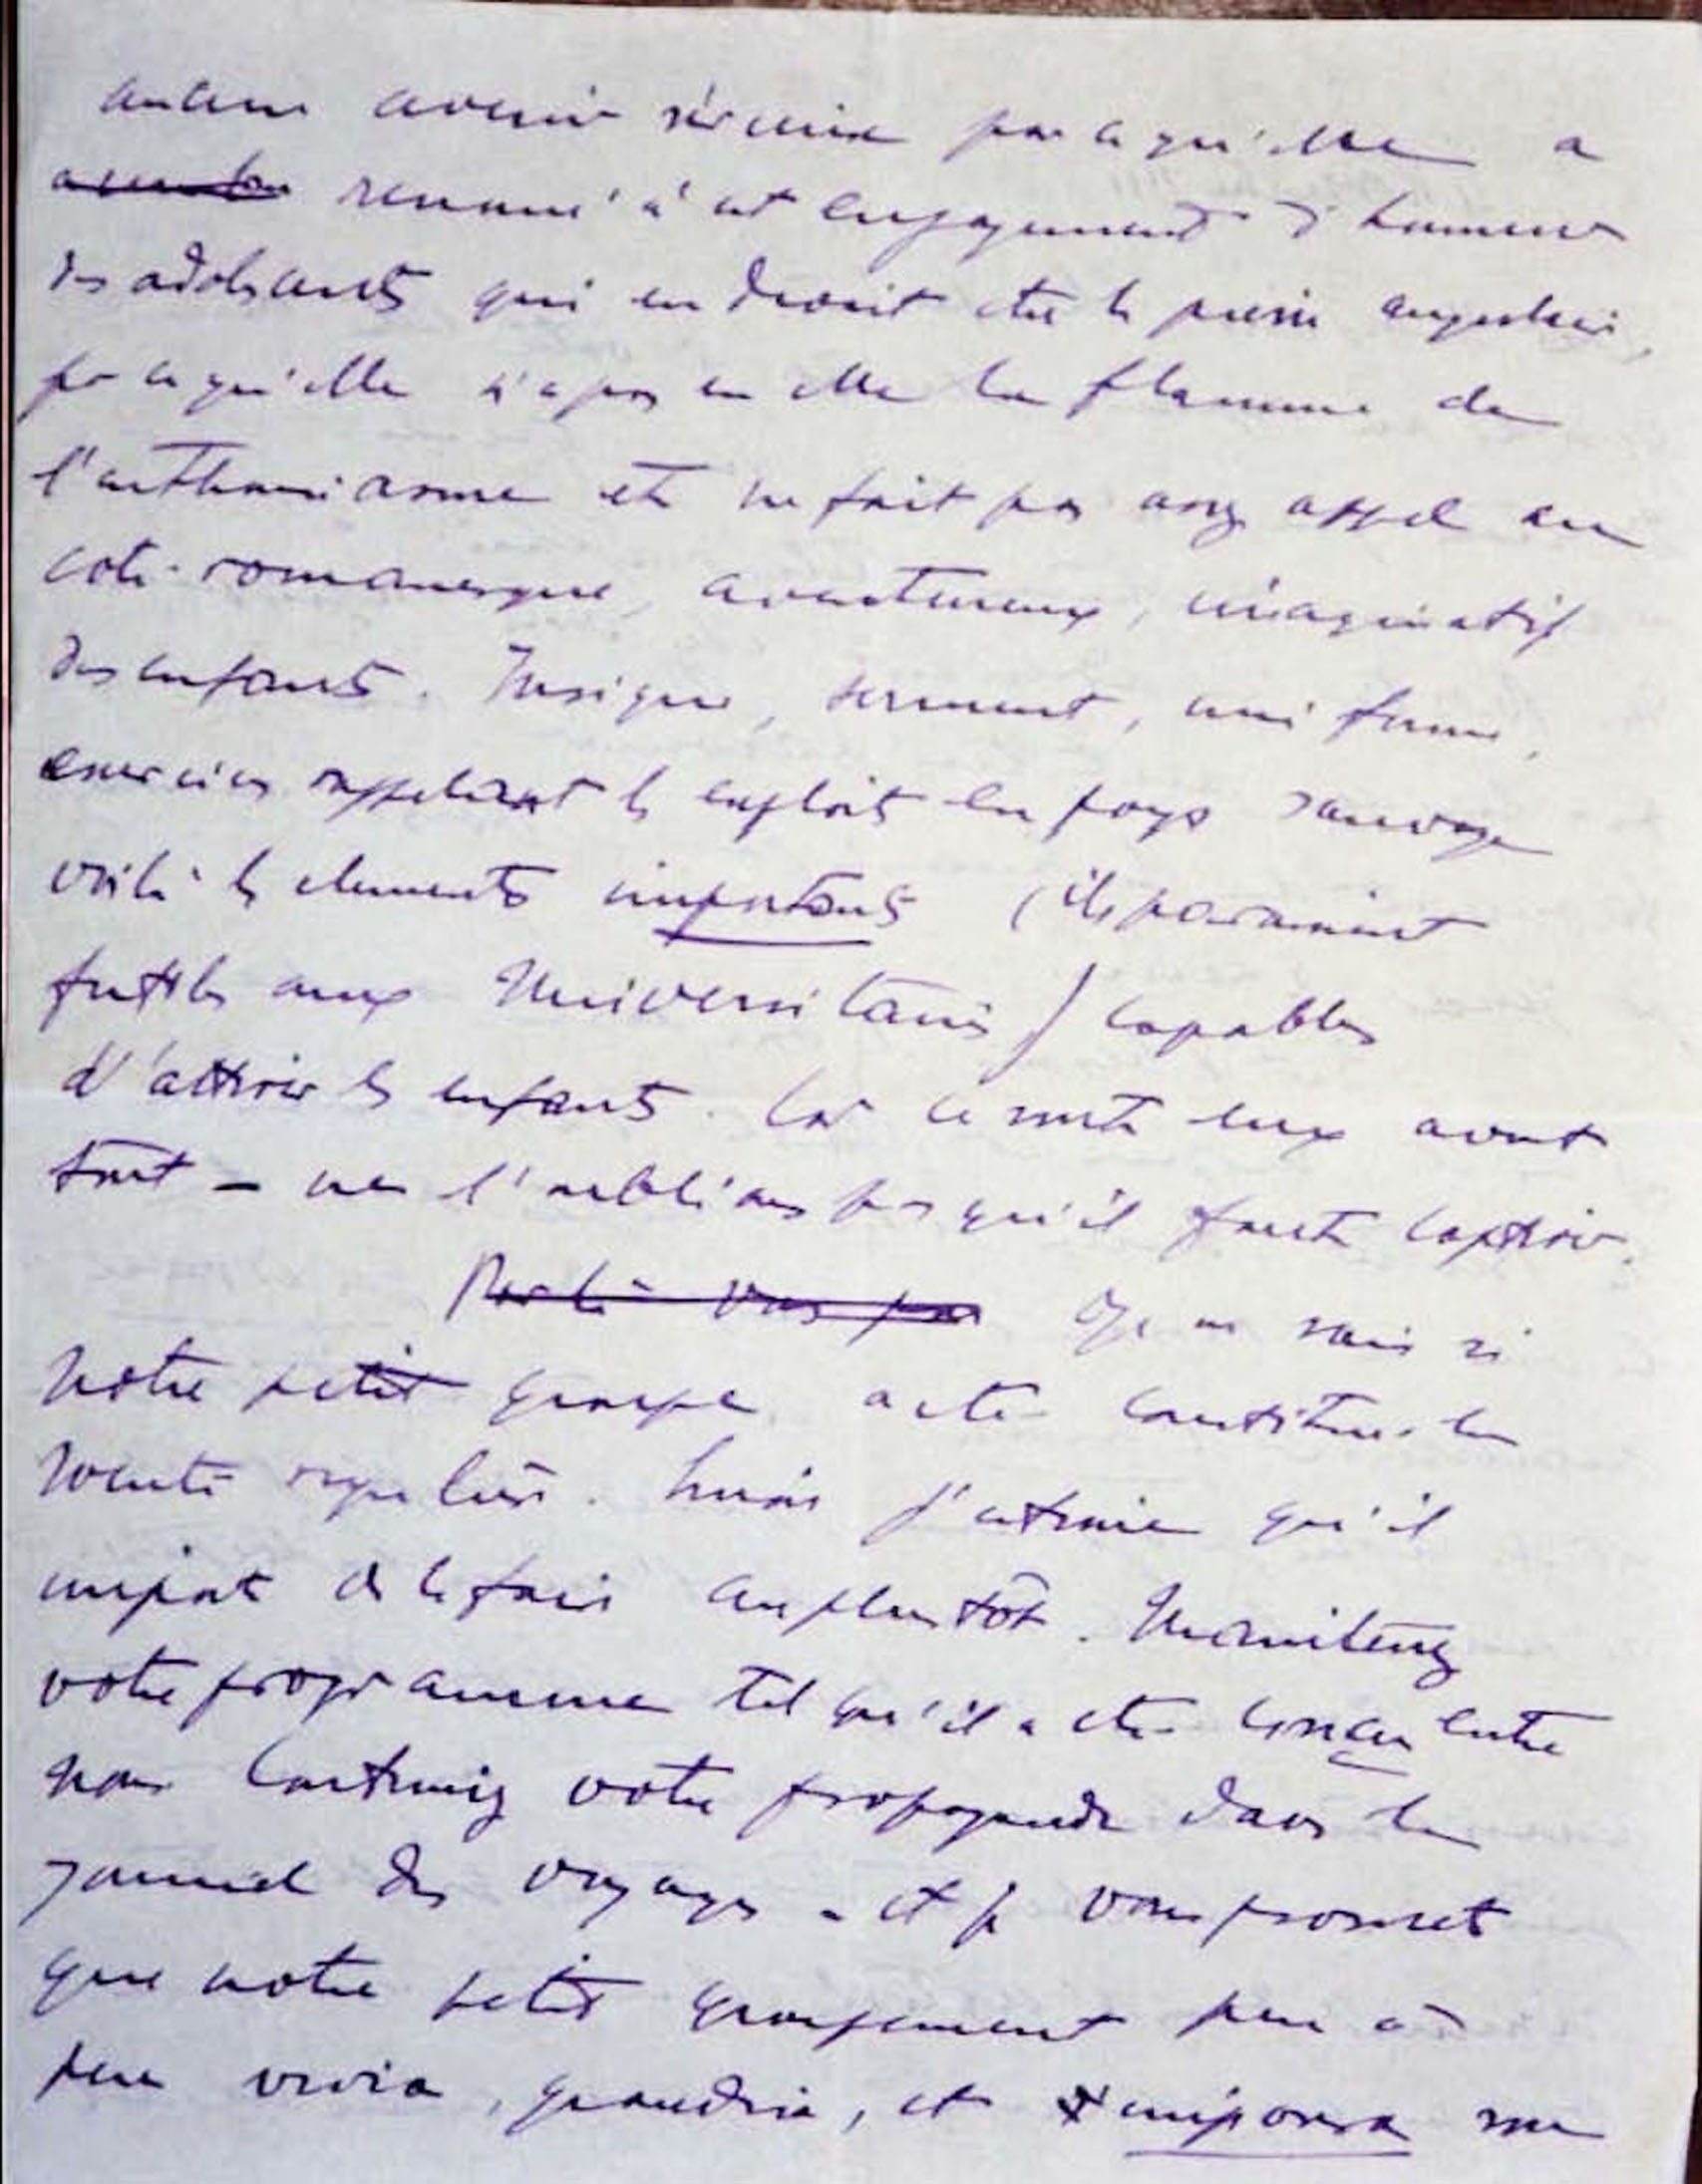 aucun avenir sérieux parce qu'elle a
renoncé à cet engagement d'honneur
des adolescents qui en devrait être le pierre angulaire,
parce qu'elle n'a pas en elle la flamme de
l'enthousiasme et ne fait pas assez appel au
côté romanesque, aventureux, imaginatif
des enfants. Insigne, serment, uniforme,
exercices rappelant les exploits en pays sauvage
voilà les éléments importants (ils paraissent
futiles aux Universitaires) capables
d'attirer les enfants. Car ce sont eux avant
tout - ne l'oublions pas qu'il faut captiver.
Je ne sais si
notre petit groupe a été constitué en
société régulière. Mais j'estime qu'il
importe de le faire au plus tôt. Maintenez
votre programme tel qu'il a été conçu entre
nous Continuez votre propagande dans le
Journal des Voyages - et je vous promet
que notre petit groupement peu à
peu vivra, grandira, et imposera son